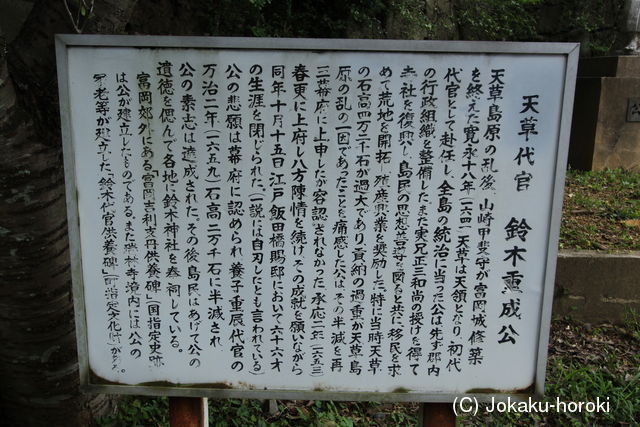 天草代官 鈴木重成公
天草島原の乱後、山崎甲斐守が富岡城修築
を終えた寛永十八年(一六四一)天草は天領となり、初代
代官として赴任し、全島の統治に当った公は先ず郡内
の行政組織を整備した。また実兄正三和尚の援けを得て
寺社を復興し、島民の思想善導を図ると共に移民を求
めて荒地を開拓、殖産興業を奨励した。特に当時天草
の石高四万二千石が過大であり、貢納の過重が天草島
原の乱の一因であったことを痛感した公は、その半減を再
三幕府に上申したが容認されなかった。承応二年(一六五三)
春更に上府し八方陳情を続け、その成就を願いながら
同年十月十五日江戸飯田橋賜邸において六十六才
の生涯を閉じられた。(一説には自刃したとも言われている)
公の悲願は幕府に認められ養子重辰代官の
万治二年(一六五九)石高二万千石に半減され
公の素志は達成された。その後島民はあげて公の
遺徳を偲んで各地に鈴木神社を奉祠している。
富岡郊外にある「富岡吉利支丹供養碑」(国指定史跡)
は公が建立したものである。また瑞林寺境内には公の
老等が建立した「鈴木代官供養碑」(町指定文化財)がある。
(C) Jokaku-horoki